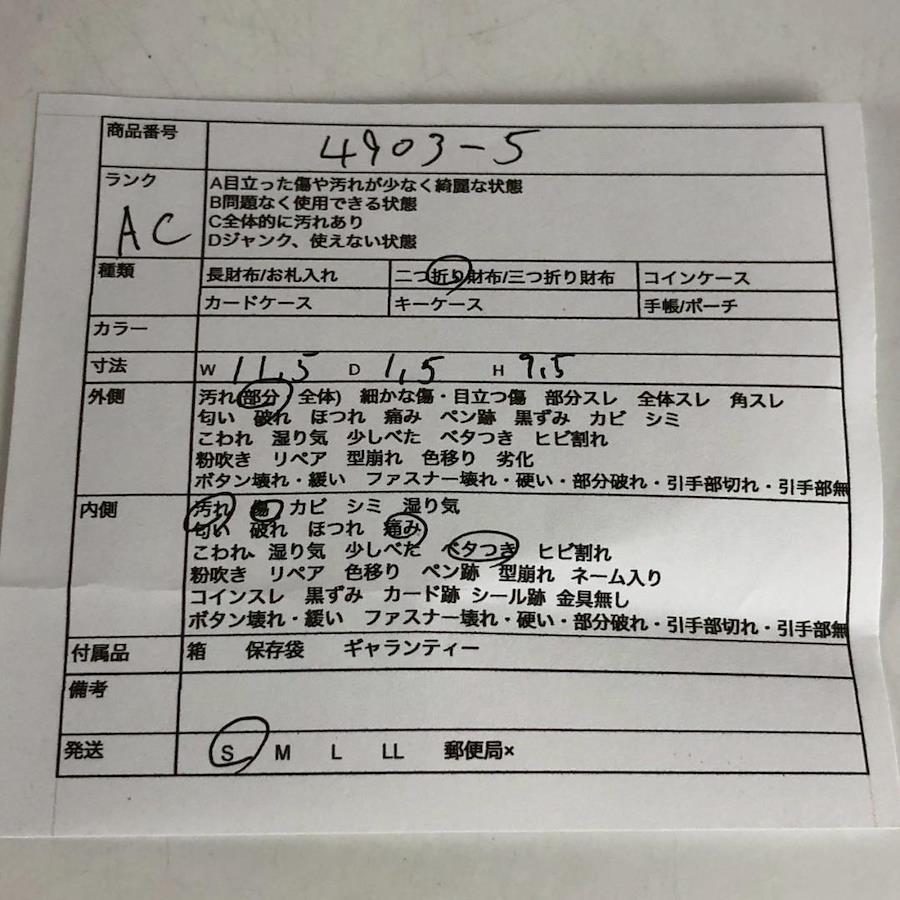 商品番号 4903-5
ランク A目立った傷や汚れが少なく綺麗な状態
B問題なく使用できる状態
AC C全体的に汚れあり
Dジャンク、使えない状態
種類 長財布/お札入れ 二つ折り財布/三つ折り財布 コインケース
カードケース キーケース 手帳/ポーチ
カラー
寸法 W 11,5 D 1,5 H 9,5
外側 汚れ(部分 全体) 細かな傷・目立つ傷 部分スレ 全体スレ 角スレ
匂い 破れ ほつれ 痛み ペン跡 黒ずみ カビ シミ
こわれ 湿り気 少しべた ベタつき ヒビ割れ
粉吹き リペア 型崩れ 色移り 劣化
ボタン壊れ・緩い ファスナー壊れ・硬い・部分破れ・引手部切れ・引手部無
内側 汚れ 傷 カビ シミ 湿り気
匂い 破れ ほつれ 痛み
こわれ、湿り気 少しべた ベタつき ヒビ割れ
粉吹き リペア 色移り ペン跡 型崩れ ネーム入り
コインスレ 黒ずみ カード跡 シール跡 金具無し
ボタン壊れ・緩い ファスナー壊れ・硬い・部分破れ・引手部切れ・引手部無
付属品 箱 保存袋 ギャランティー
備考
発送 S M L LL 郵便局×